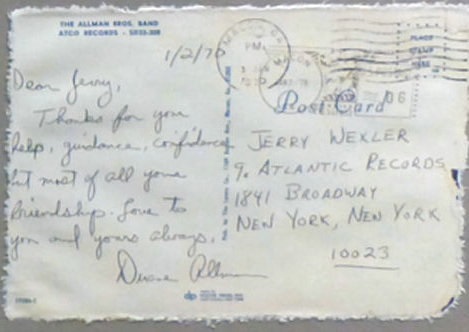 THE ALLMAN BROS. BAND
ATCO RECORDS - SD33-308
1/2/70
Dear Jerry,
Thanks for your
help, guidance, confidence
but most of all your
friendship. Love to
you and yours always,
Duane Allman
MACON, GA
PM
1970
PLACE
STAMP
HERE
06
Post Card
JERRY WEXLER
% ATLANTIC RECORDS
1841 BROADWAY
NEW YORK, NEW YORK
10023